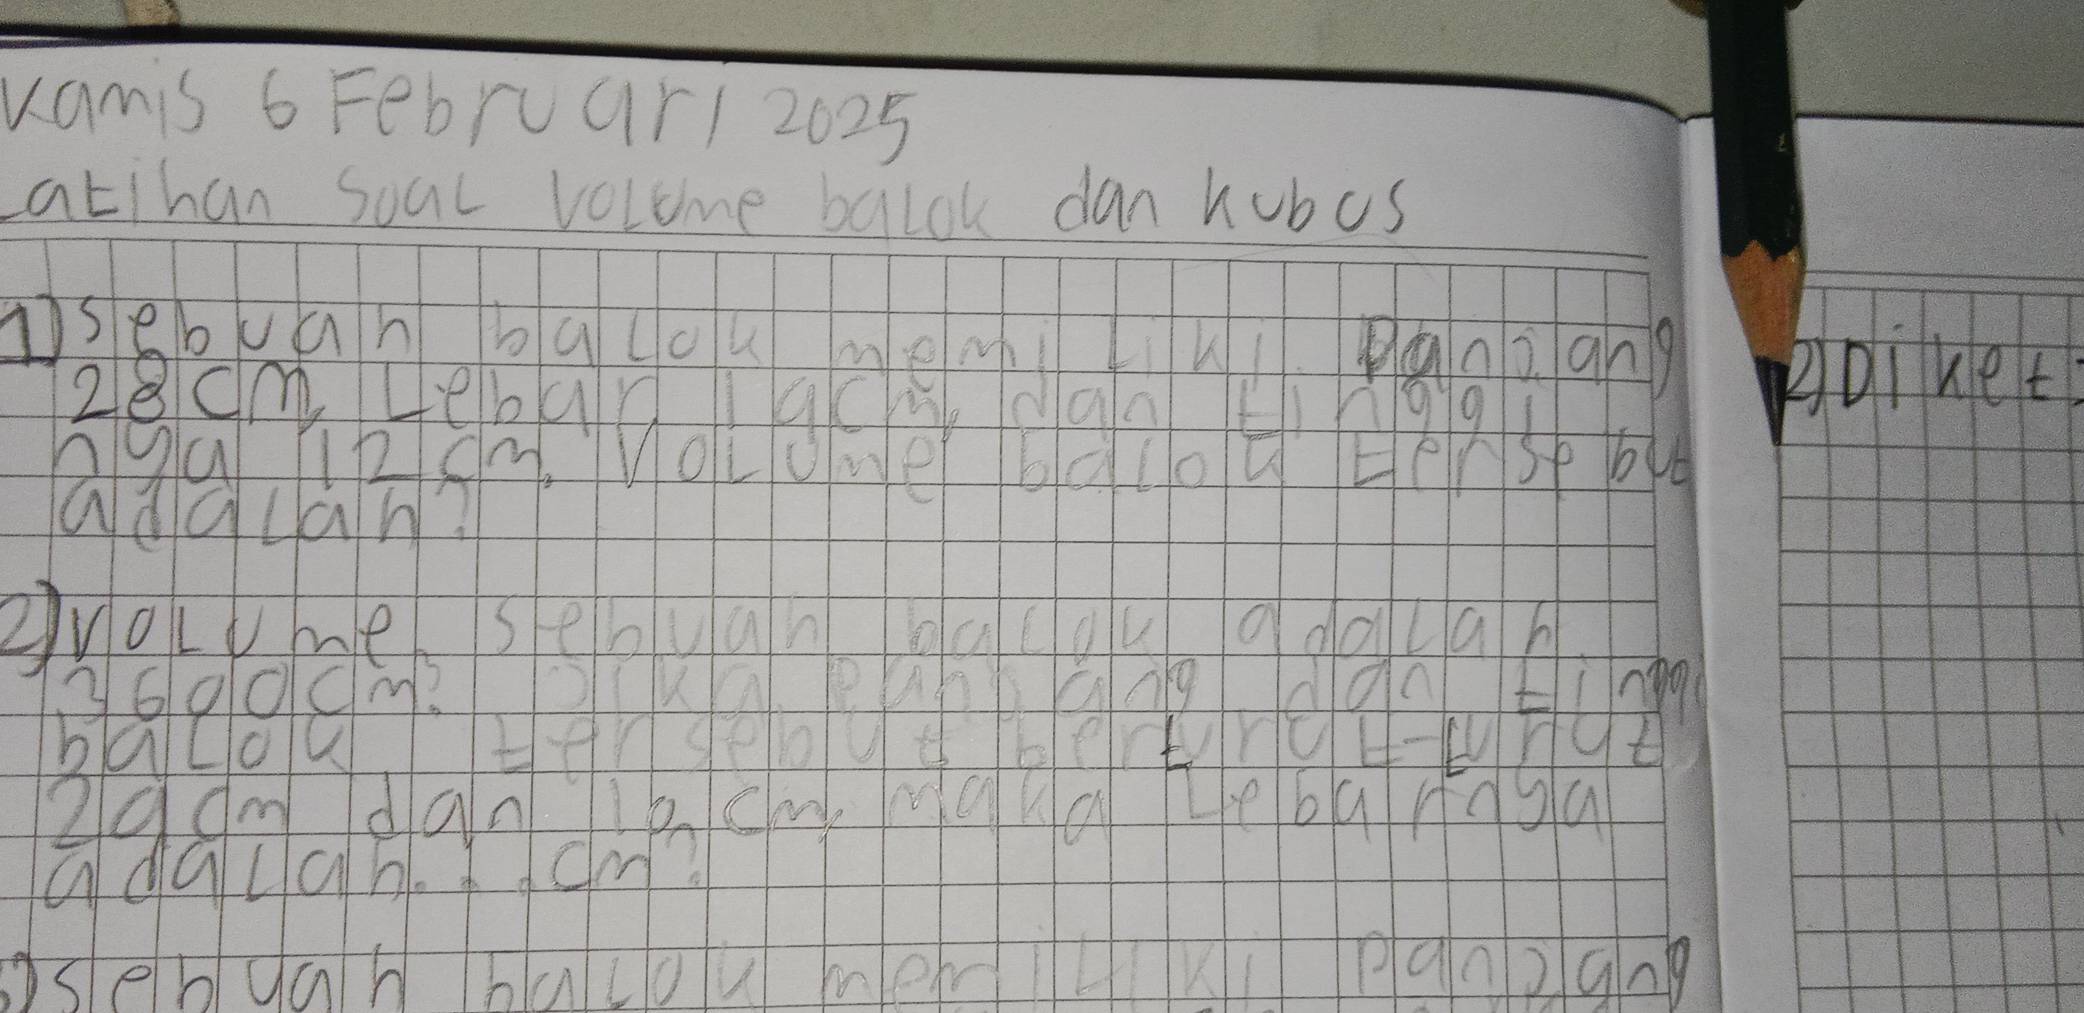 Kamis 6 Februari 2025
Latihan soal volume balok dan kubus
1) sebuah balok memiliki panjang
28 cm, Lebar 19cm, dan tinggi
nya 12 cm. Volume balok tersebut
adalah?
2) volume sebuah balok adalah
3600cm³. Jika panjang dan tinggi
balok tersebut berturut-turut
29cm dan 10 cm, maka Lebarnya
adalah... cm?
sebuah balok memiliki panjang
2) Diket: